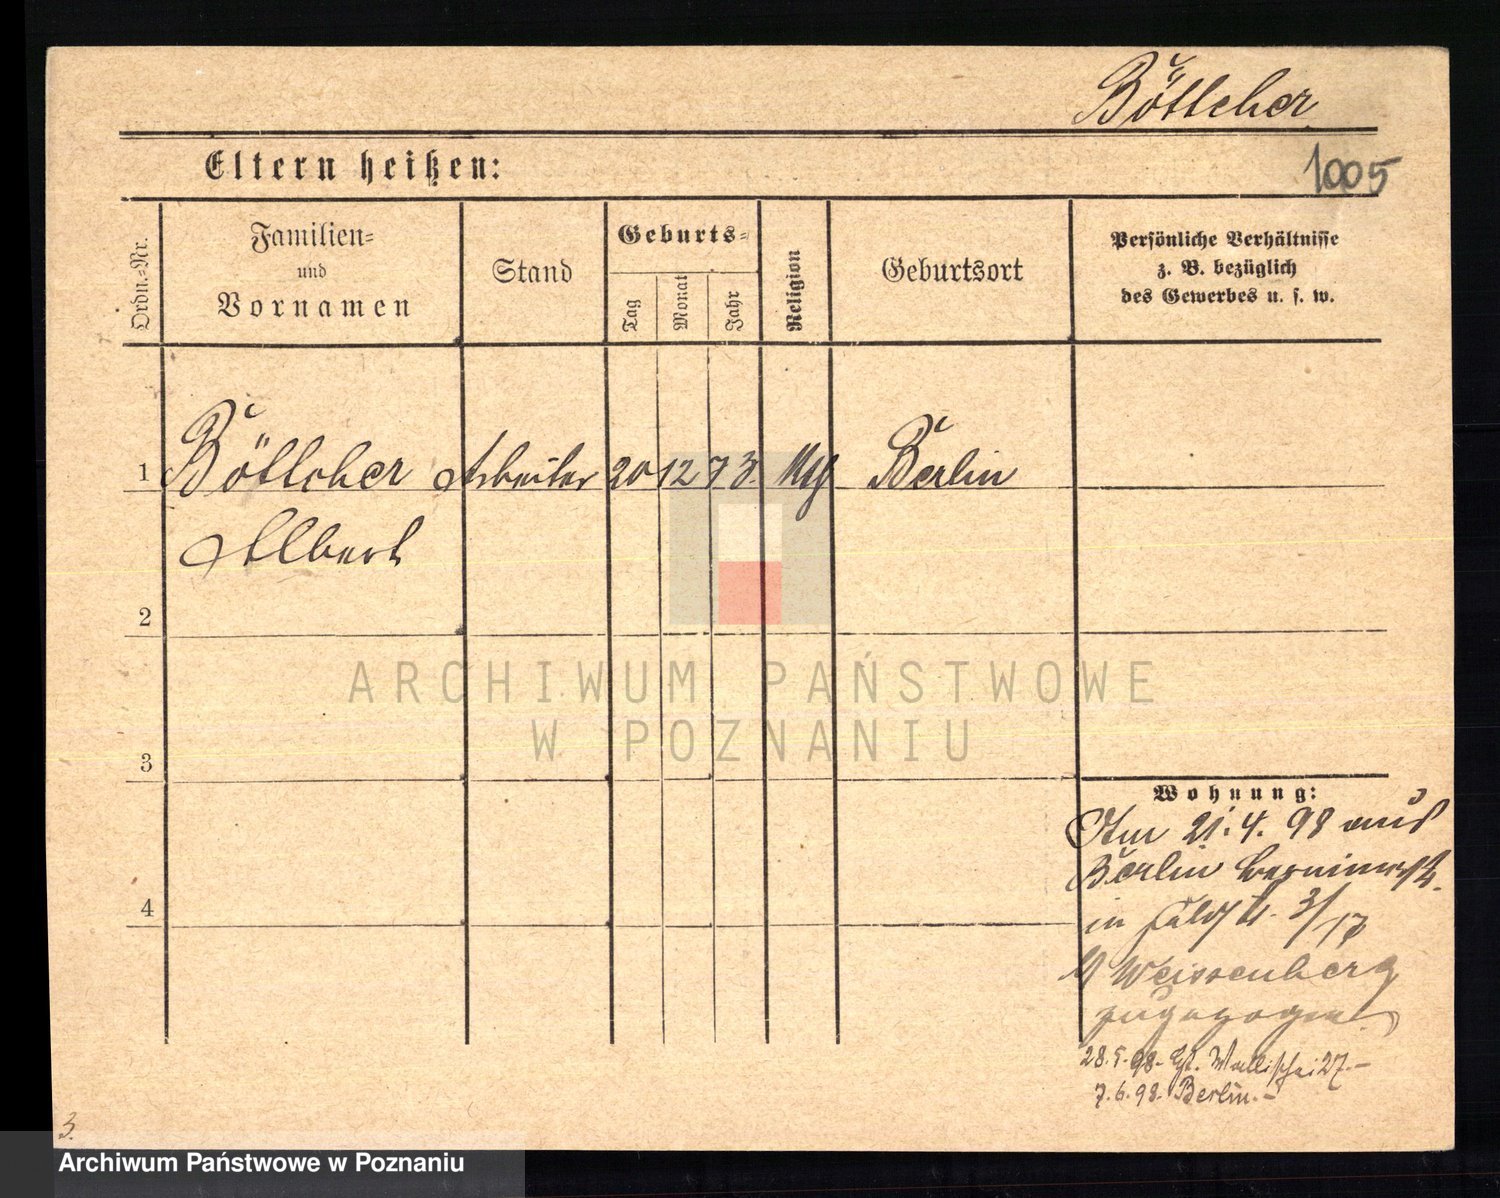 Böttcher
Eltern heißen:
1005
Ordn.=Nr.
Familien=
und
Vornamen
Stand
Geburts=
Tag
Monat
Jahr
Religion
Geburtsort
Persönliche Verhältnisse
z. B. bezüglich
des Gewerbes u. s. w.
1
Böttcher Arbeiter 20 12 73. Berlin
Albert
2
ARCHIWUM PAŃSTWOWE
W POZNANIU
3
Wohnung:
Am 21.4.98 aus
Berlin
in 3/17
Weissenberg
zugezogen
4
28.5.98. Wallischei 27.-
7.6.98. Berlin.-
3.
Archiwum Państwowe w Poznaniu